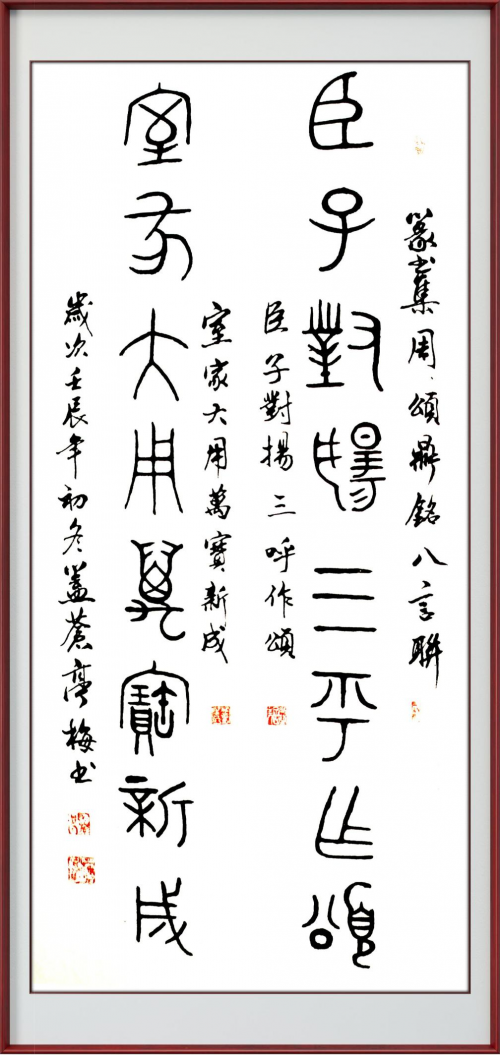 篆書集周頌鼎銘八言聯
臣子對揚三乎乍頌
臣子對揚三呼作頌
室家大用萬寶新成
室家大用萬寶新成
歲次壬辰年初冬蓋蒼亭梅書